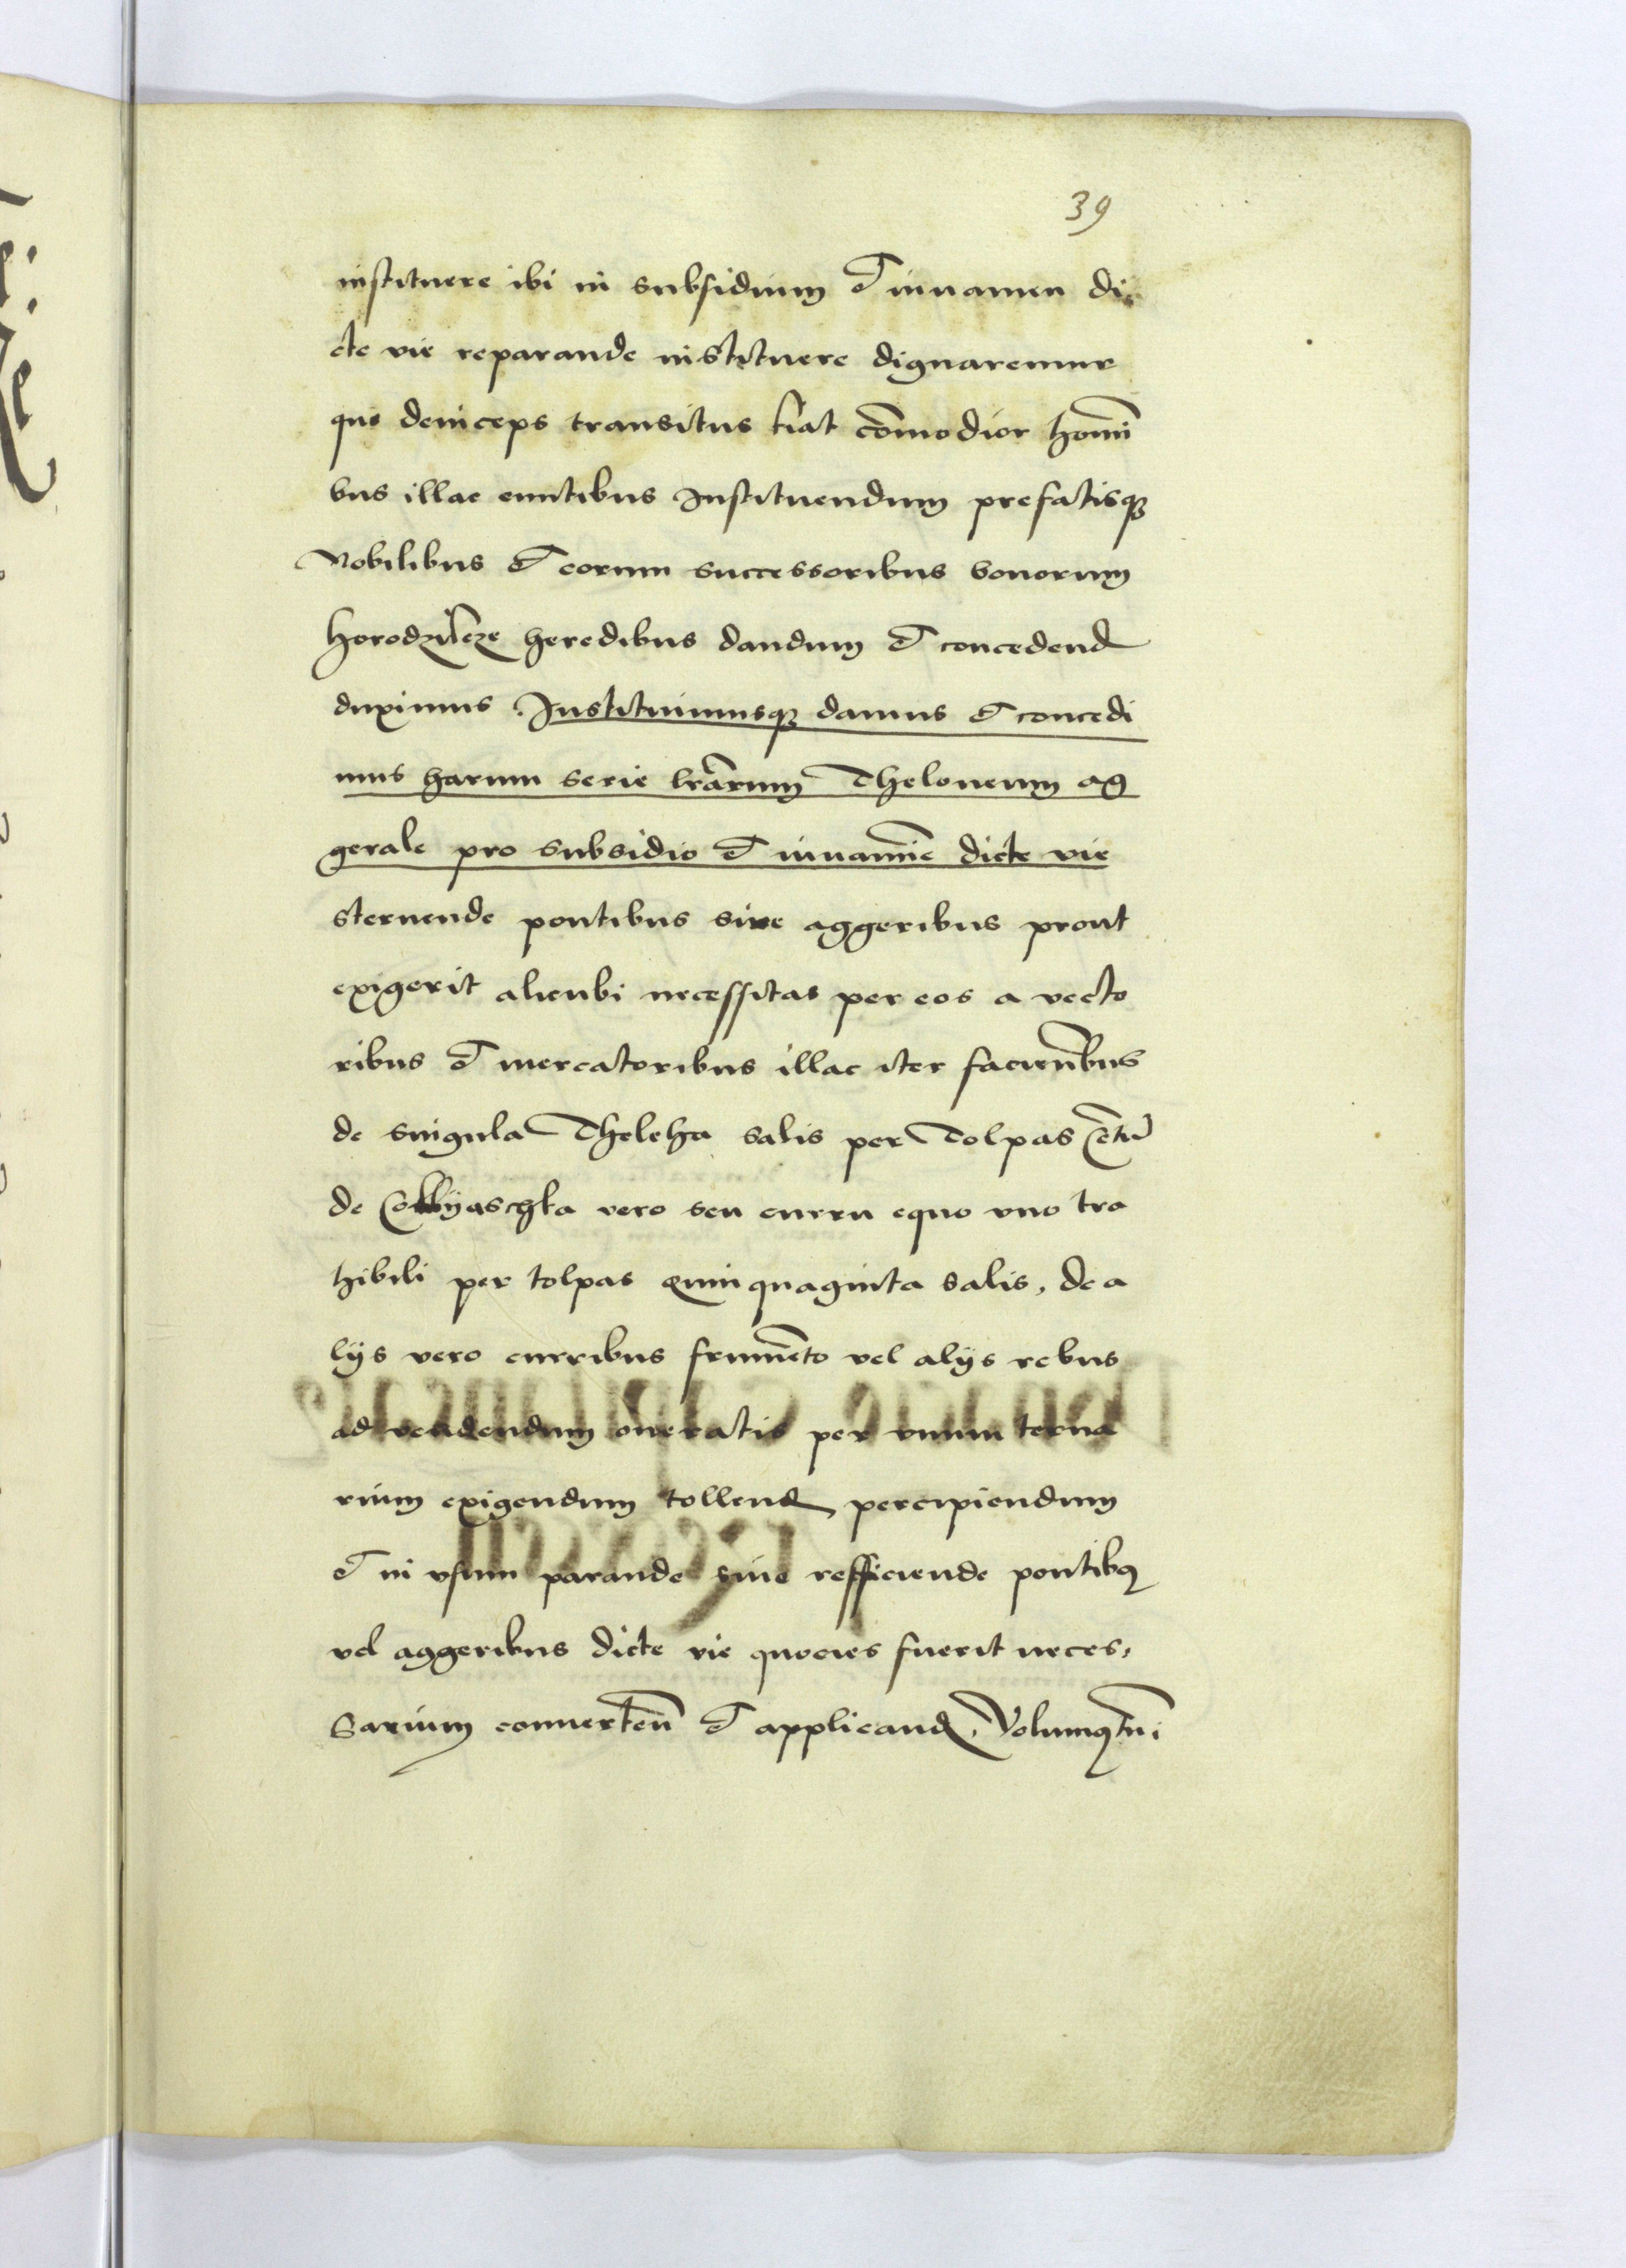 39
instituere ibi in subsidium et iuuamen di
cte vie reparande instituere dignaremur
quo deinceps transitus fiat cōmodior homī
bus illac euntibus Instituendum prefatisq
Nobilibus et eorum successoribus bonorum
heredibus dandum et concedend
duximus Instituimusq damus et concedi
mus harum serie lrārum Theloneum ag
gerale pro subsidio et iuuamīe dicte vie
sternende pontibus siue aggeribus prout
exigerit alicubi necessitas per eos a vecto
ribus et mercatoribus illac iter facientibus
de singula Theleha salis per Tolpas
de vero seu curru equo vno tra
hibili per tolpas quinquaginta salis, de a
lijs vero curribus frumēto vel alijs rebus
ad vendendum oneratis per vnum terna
rium exigendum tollend percipiendum
et in vsum parande siue refficiende pontibꝰ
vel aggeribus dicte vie quocies fuerit neces,
sarium conuerten̄ et applicand, Volumꝰ tn̄